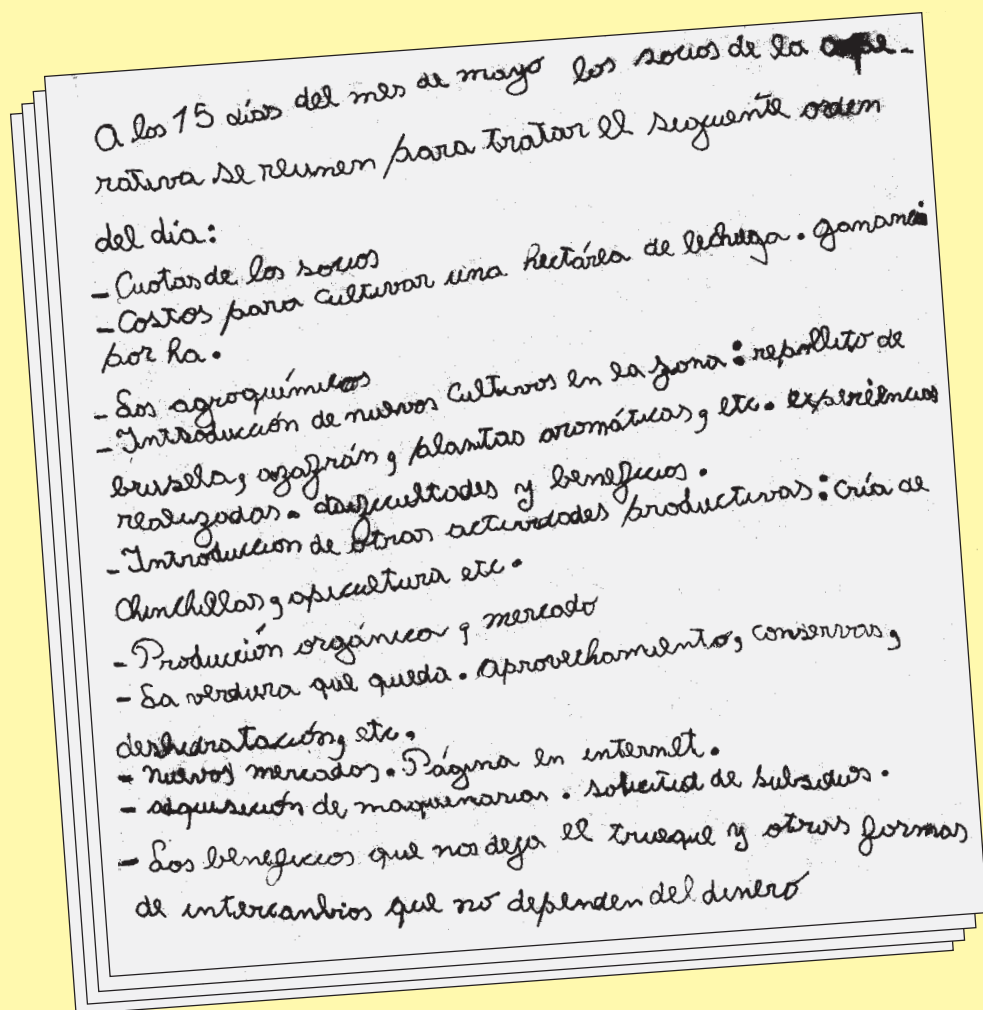 A los 15 días del mes de mayo los socios de la coope-
rativa se reunen para tratar el seguiente orden
del dia:
- Cuotas de los socios
- Costos para cultivar una hectárea de lechuga. ganancia
por ha.
- Los agroquímicos
- Introducción de nuevos cultivos en la zona: repollito de
brusela, azafrán, plantas aromáticas, etc. experiencias
realizadas. dificultades y beneficios.
- Introduccion de otras actividades productivas: cría de
chinchillas, apicultura etc.
- Producción orgánica, mercado
- La verdura que queda. aprovechamiento, conservas,
deshidratación, etc.
- nuevos mercados. Página en internet.
- adquisición de maquinarias. solicitud de subsidios.
- Los beneficios que nos deja el trueque y otras formas
de intercanbios que no dependen del dinero